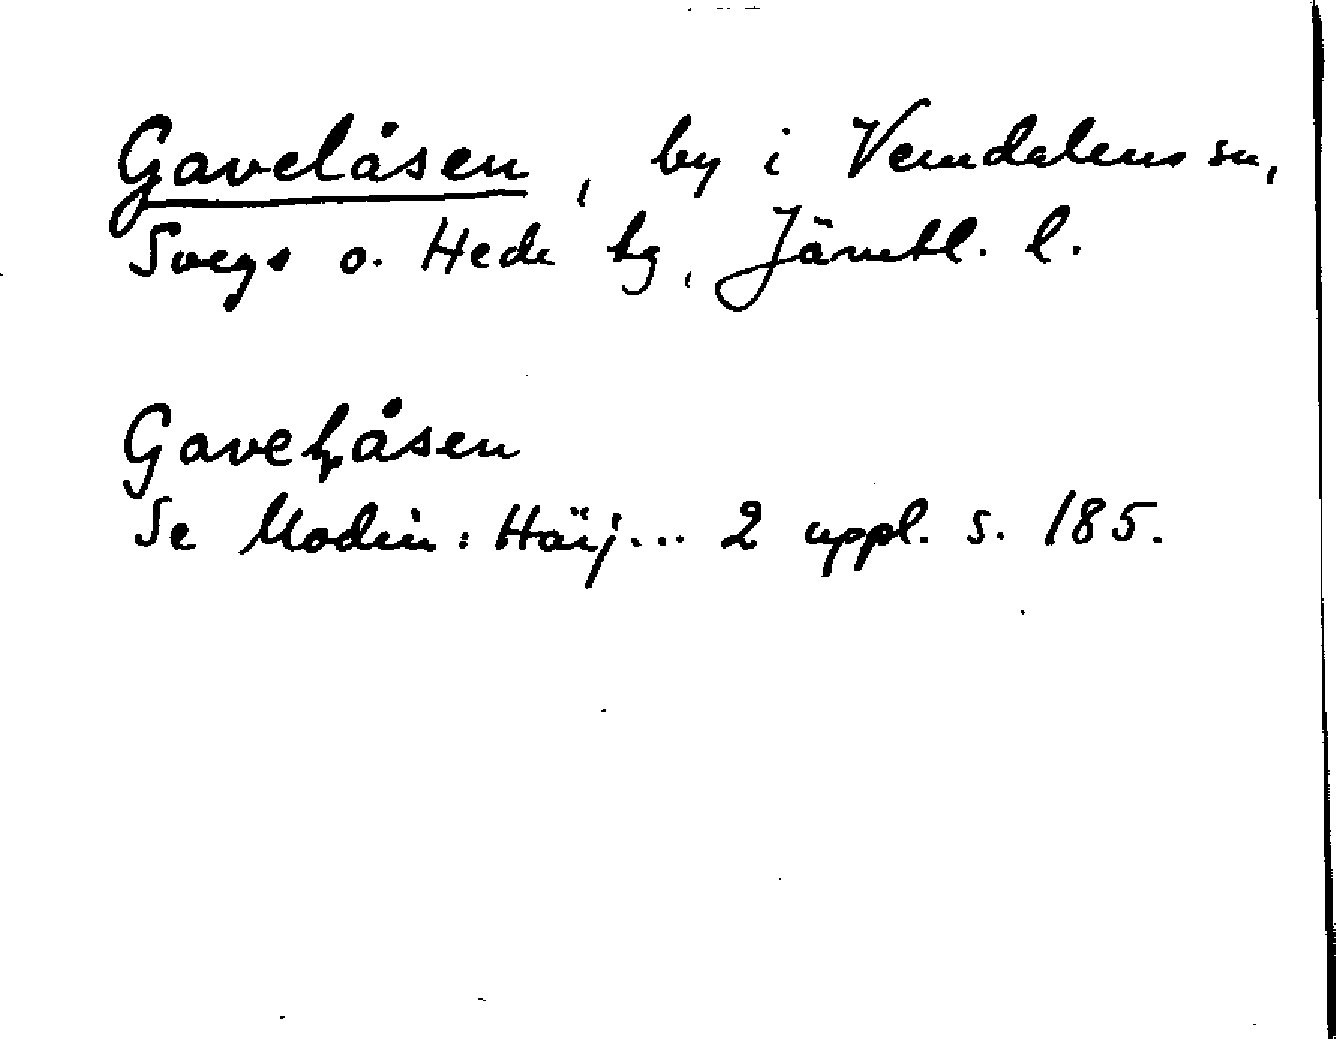 Gavelåsen, by i Vemdalens sn,
Svegs o. Hede tg, Jämtl. l.
Gaveļåsen
Se Modin: Härj... 2 uppl. s. 185.